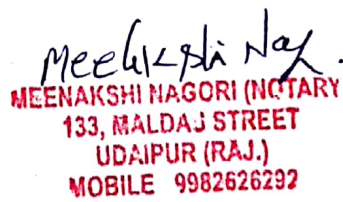 Meenakshi Nag.
MEENAKSHI NAGORI (NOTARY
133, MALDAJ STREET
UDAIPUR (RAJ.)
MOBILE 9982626292